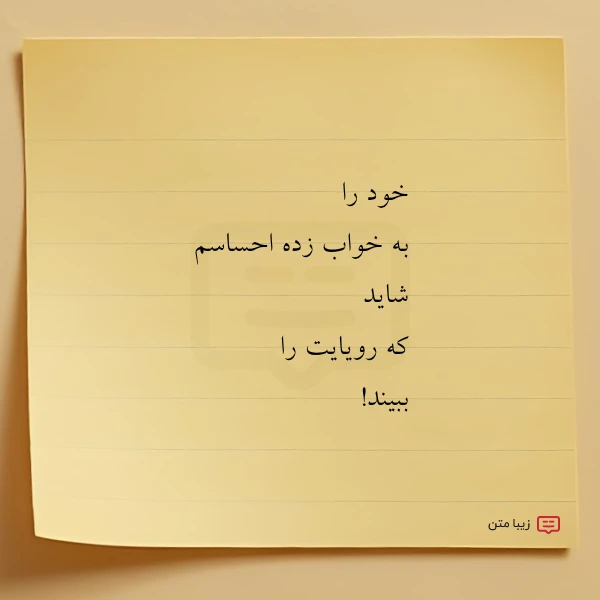 خود را
به خواب زده احساسم
شاید
که رویایت را
ببیند!
زیبا متن